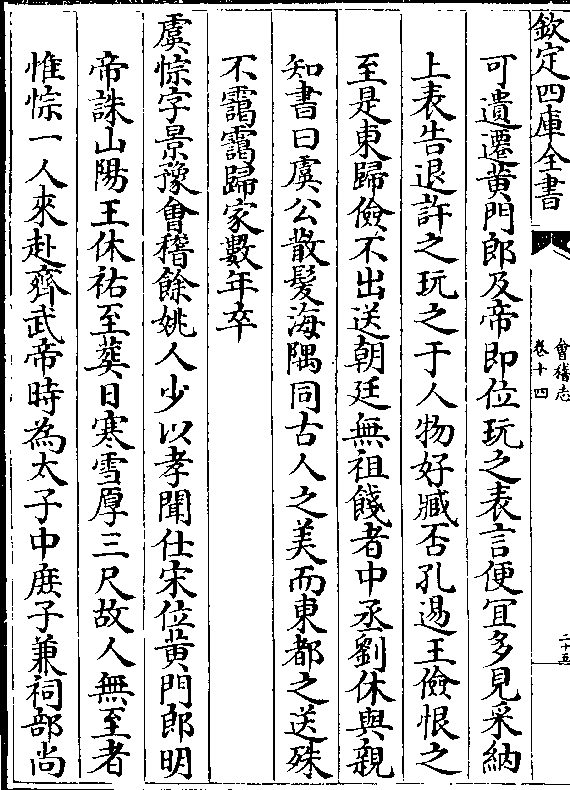 欽定四庫全書
會稽志
卷十四
二十五
可遺遷黄門郎及帝即位玩之表言便宜多見采納
上表告退許之玩之于人物好臧否孔逷王儉恨之
至是東歸儉不出送朝廷無祖餞者中丞劉休與親
知書曰虞公散髮海隅同古人之美而東都之送殊
不靄靄歸家數年卒
虞悰字景豫會稽餘姚人少以孝聞仕宋位黄門郎明
帝誅山陽王休祐至葬日寒雪厚三尺故人無至者
惟悰一人來赴齊武帝時為太子中庶子兼祠部尚